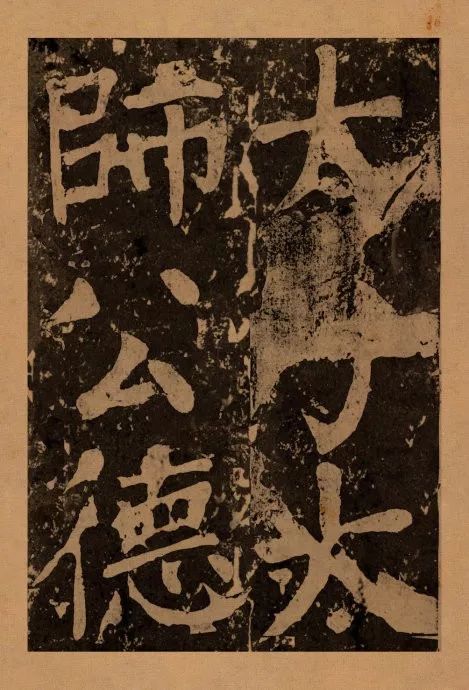 太子太
師公德